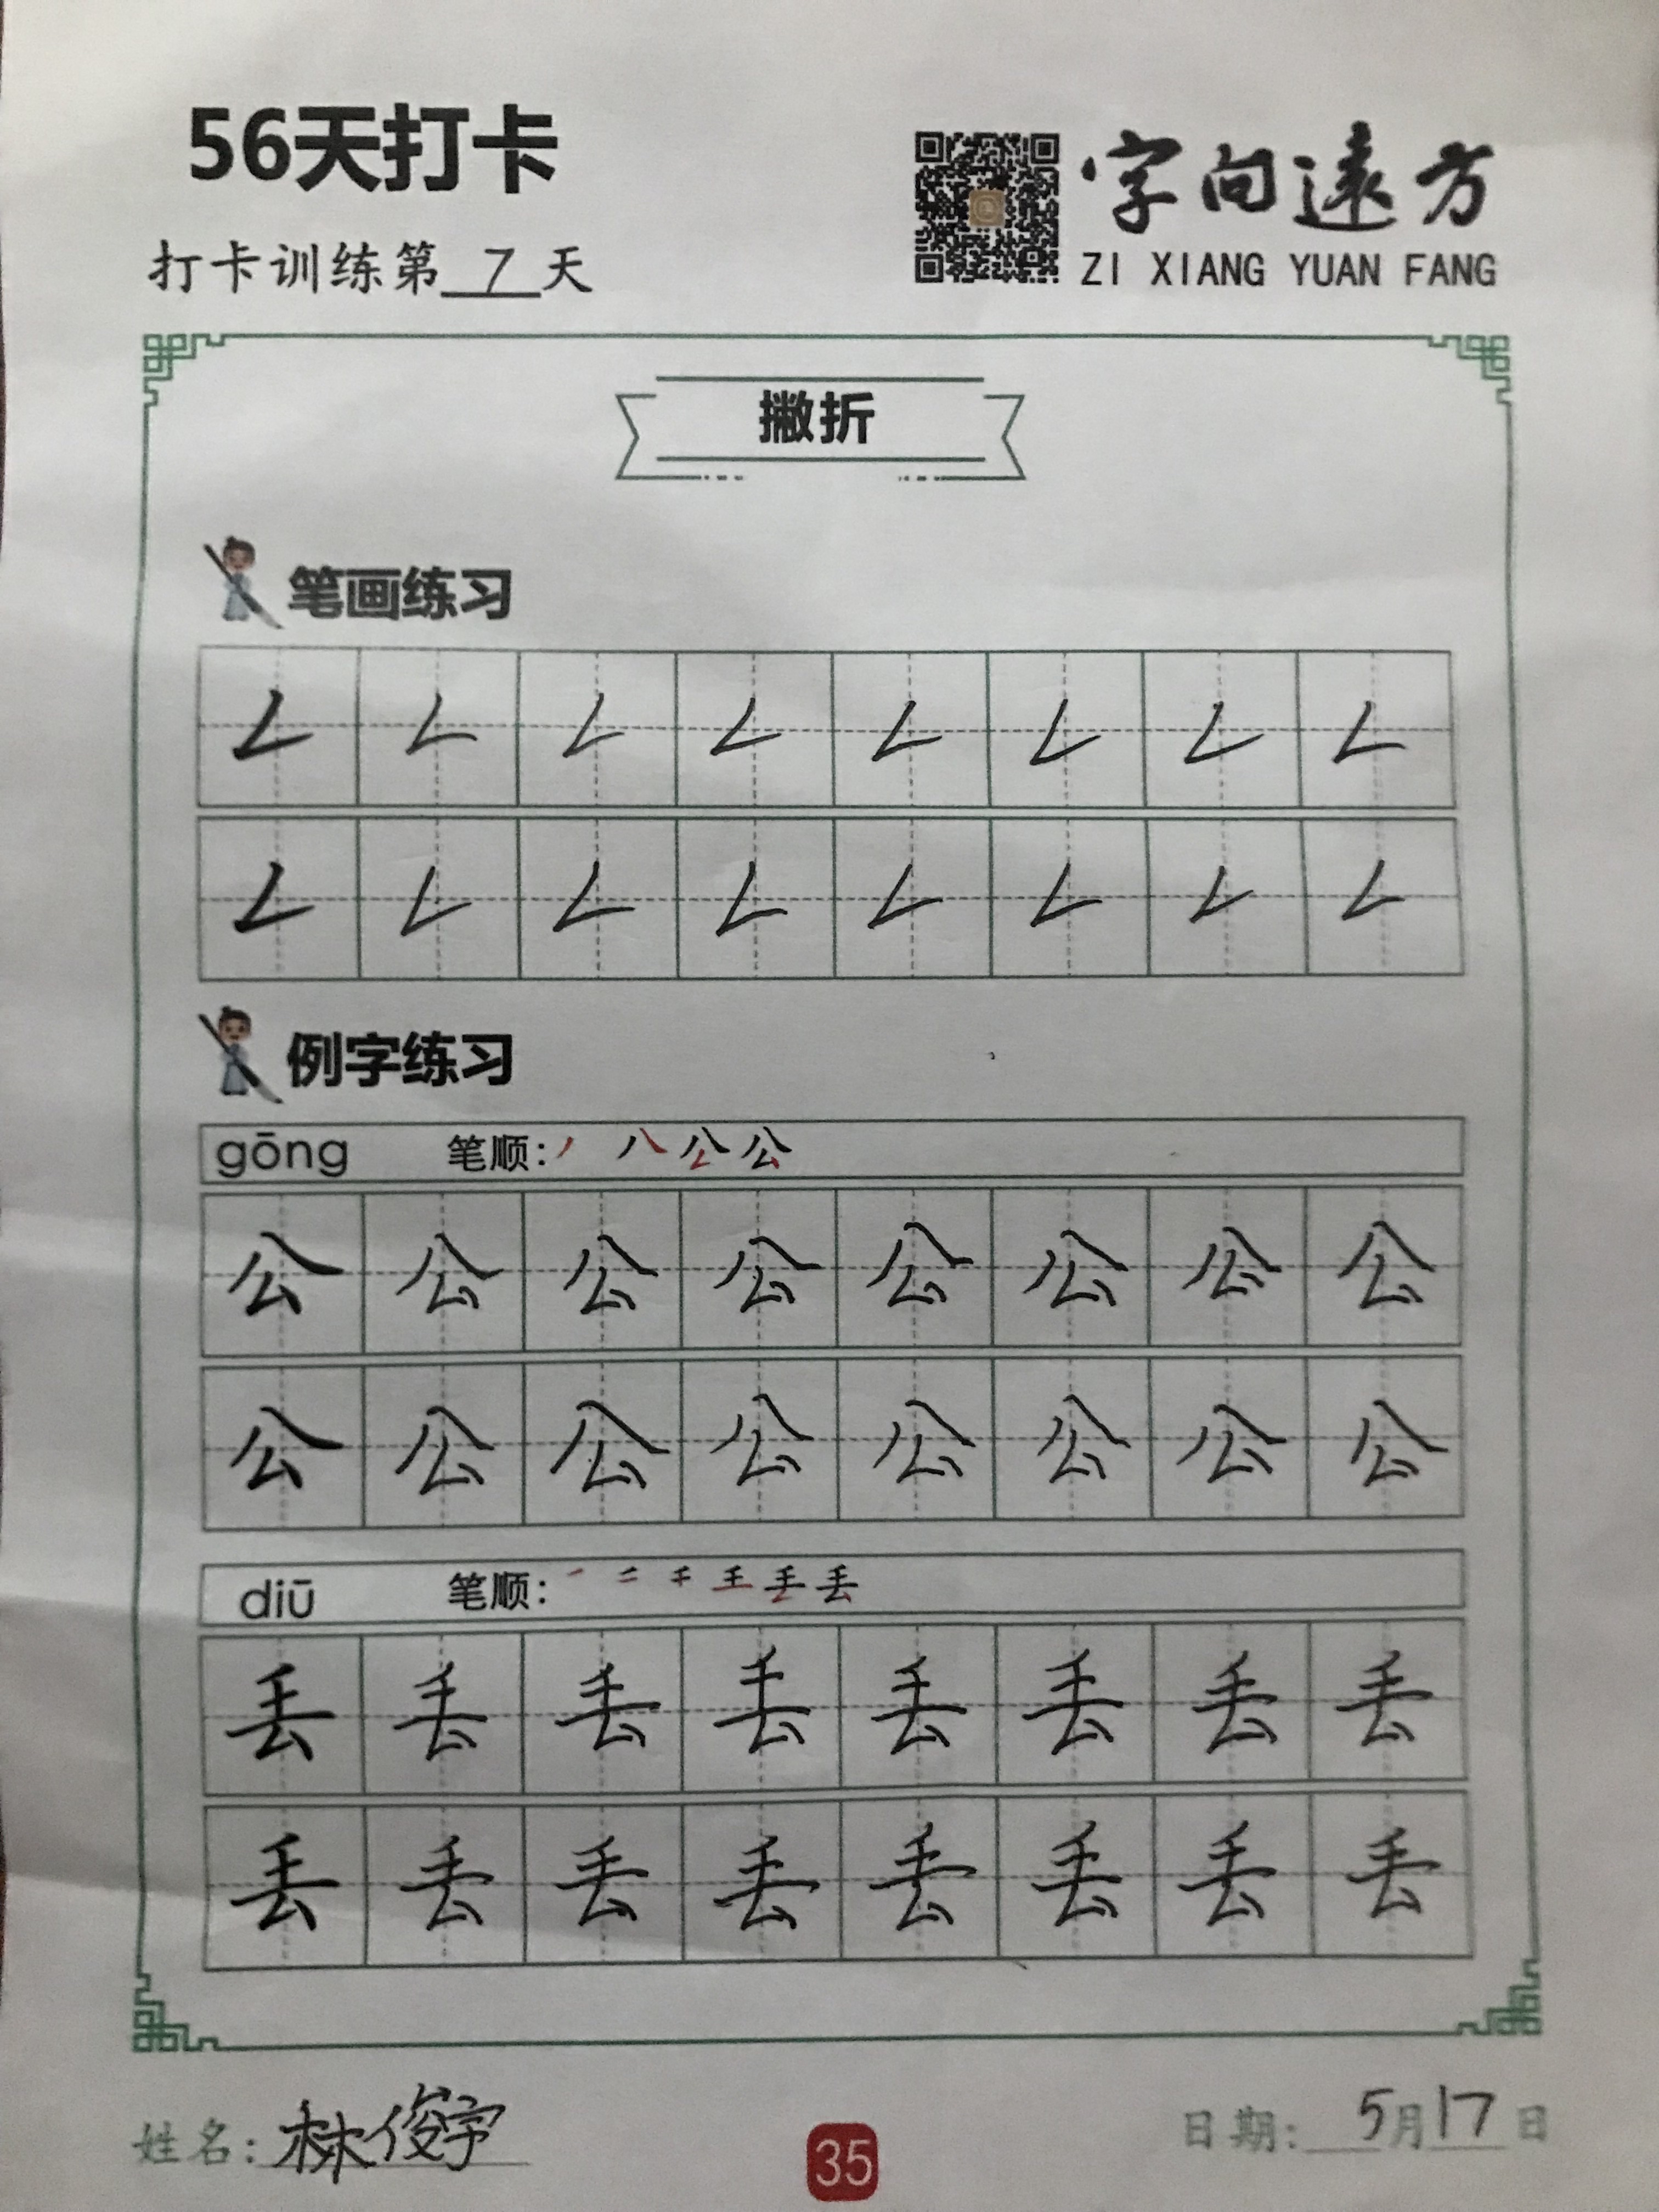 56天打卡
字向遠方
打卡训练第 7 天
ZI XIANG YUAN FANG
撇折
笔画练习
例字练习
gōng 笔顺: 公
公 公 公 公 公 公 公 公
公 公 公 公 公 公 公 公
diū 笔顺: 丢
丢 丢 丢 丢 丢 丢 丢 丢
丢 丢 丢 丢 丢 丢 丢 丢
姓名: 林俊宇
35
日期: 5月17日